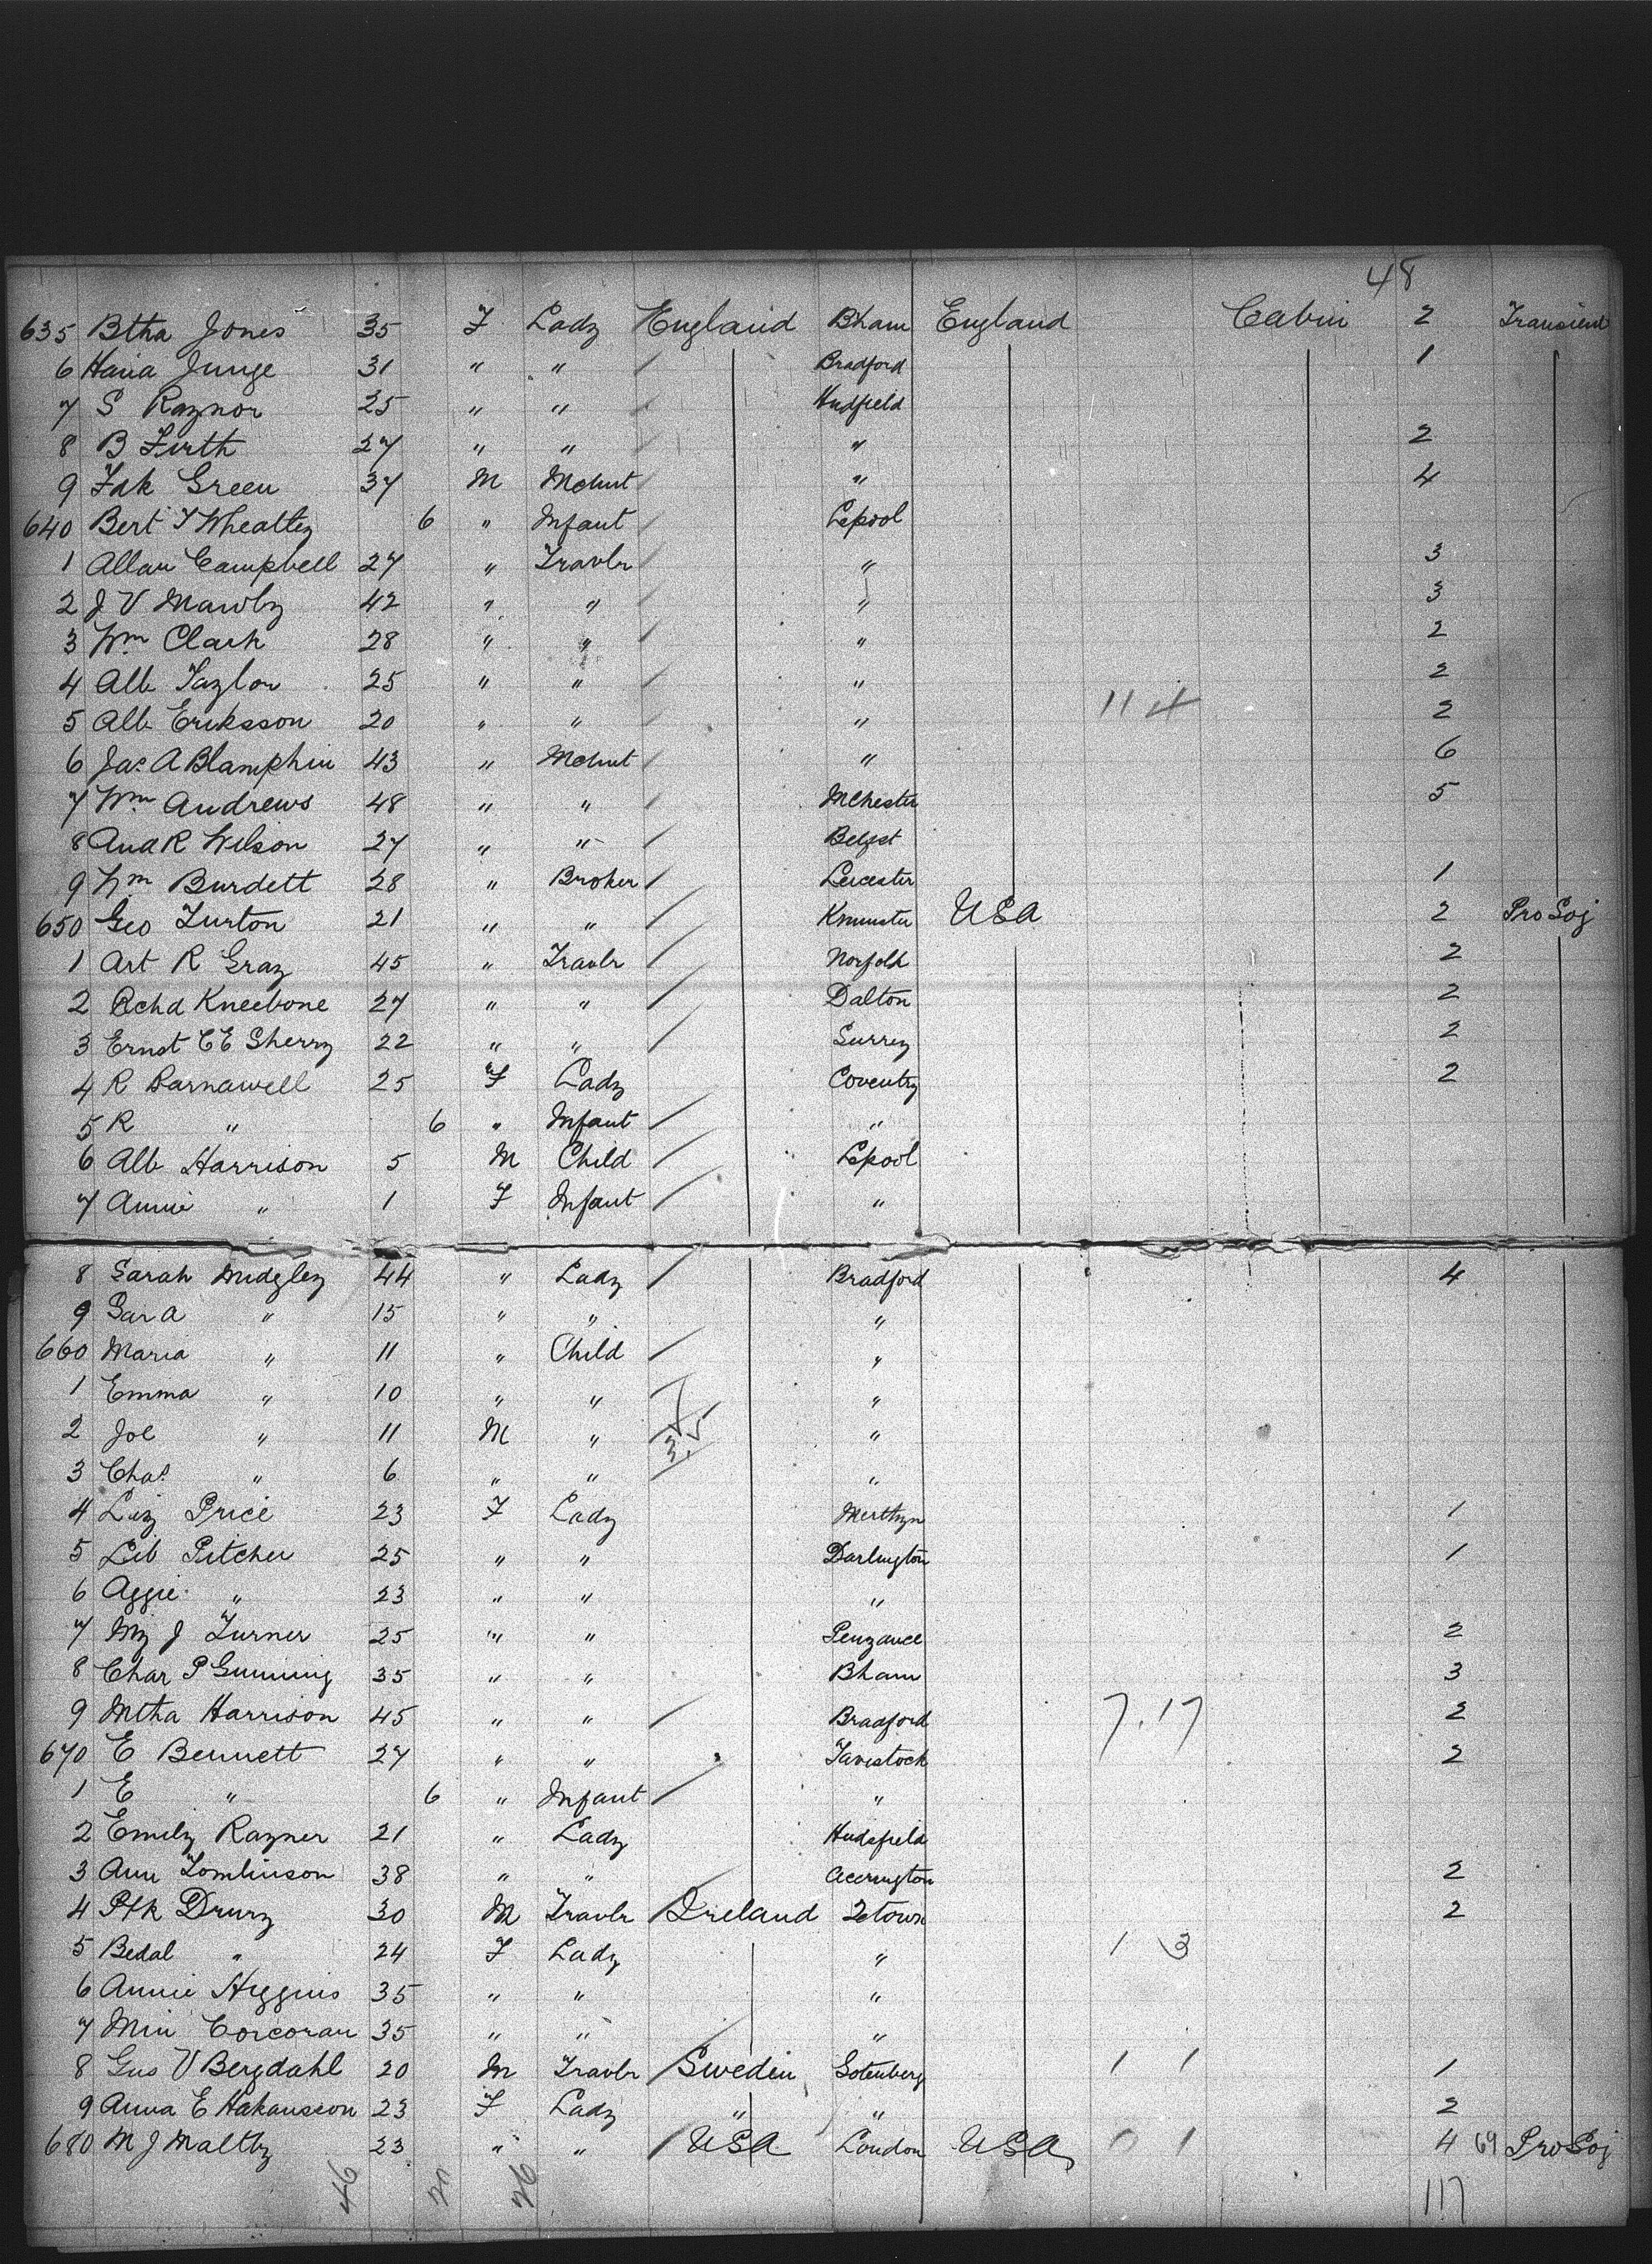 48
635 Btha Jones 35 F Lady England Bham England Cabin 2 Transient
6 Hana Junge 31 " " Bradford 1
7 S Raynor 25 " " Hudfield
8 B Firth 27 " " " 2
9 Fdk Green 37 M Mchnt " 4
640 Bert T Wheatley 6 " Infant Lpool
1 Allan Campbell 27 " Travlr " 3
2 J V Mawby 42 " " " 3
3 Wm Clark 28 " " " 2
4 Alb Taylor 25 " " " 2
5 Alb Eriksson 20 " " " 11 4 2
6 Jas A Blamphin 43 " Mchnt " 6
7 Wm Andrews 48 " " Mchester 5
8 And R Wilson 27 " " Belfst
9 Wm Burdett 28 " Broker Leicester 1
650 Geo Turton 21 " " Kminster USA 2 Pro Soj
1 Art R Gray 45 " Travlr Norfolk 2
2 Rchd Kneebone 27 " " Dalton 2
3 Ernst C E Sherry 22 " " Surrey 2
4 R Barnawell 25 F Lady Coventry 2
5 R " 6 " Infant "
6 Alb Harrison 5 M Child Lpool
7 Annie " 1 F Infant "
8 Sarah Midgley 44 " Lady Bradford 4
9 Sara " 15 " " "
660 Maria " 11 " Child "
1 Emma " 10 " " "
2 Joe " 11 M " 35 "
3 Chas " 6 " " "
4 Liz Price 23 F Lady Merthyr 1
5 Lib Pitcher 25 " " Darlington 1
6 Aggie " 23 " " "
7 My J Turner 25 " " Penzance 2
8 Char P Gunning 35 " " Bham 3
9 Mtha Harrison 45 " " Bradford 7.17 2
670 E Bennett 27 " " Tavistock 2
1 E " 6 " Infant "
2 Emily Rayner 21 " Lady Hudsfield
3 Ann Tomlinson 38 " " Accrington 2
4 Ptk Drury 30 M Travlr Ireland Qtown 2
5 Bedal " 24 F Lady " 1 3
6 Annie Higgins 35 " " "
7 Min Corcoran 35 " " "
8 Gus V Bergdahl 20 M Travlr Sweden Gotenberg 1 1 1
9 Anna E Hakansson 23 F Lady " " 2
680 M J Maltby 23 " " USA London USA 0 1 4 69 Pro Soj
46 20 26 117